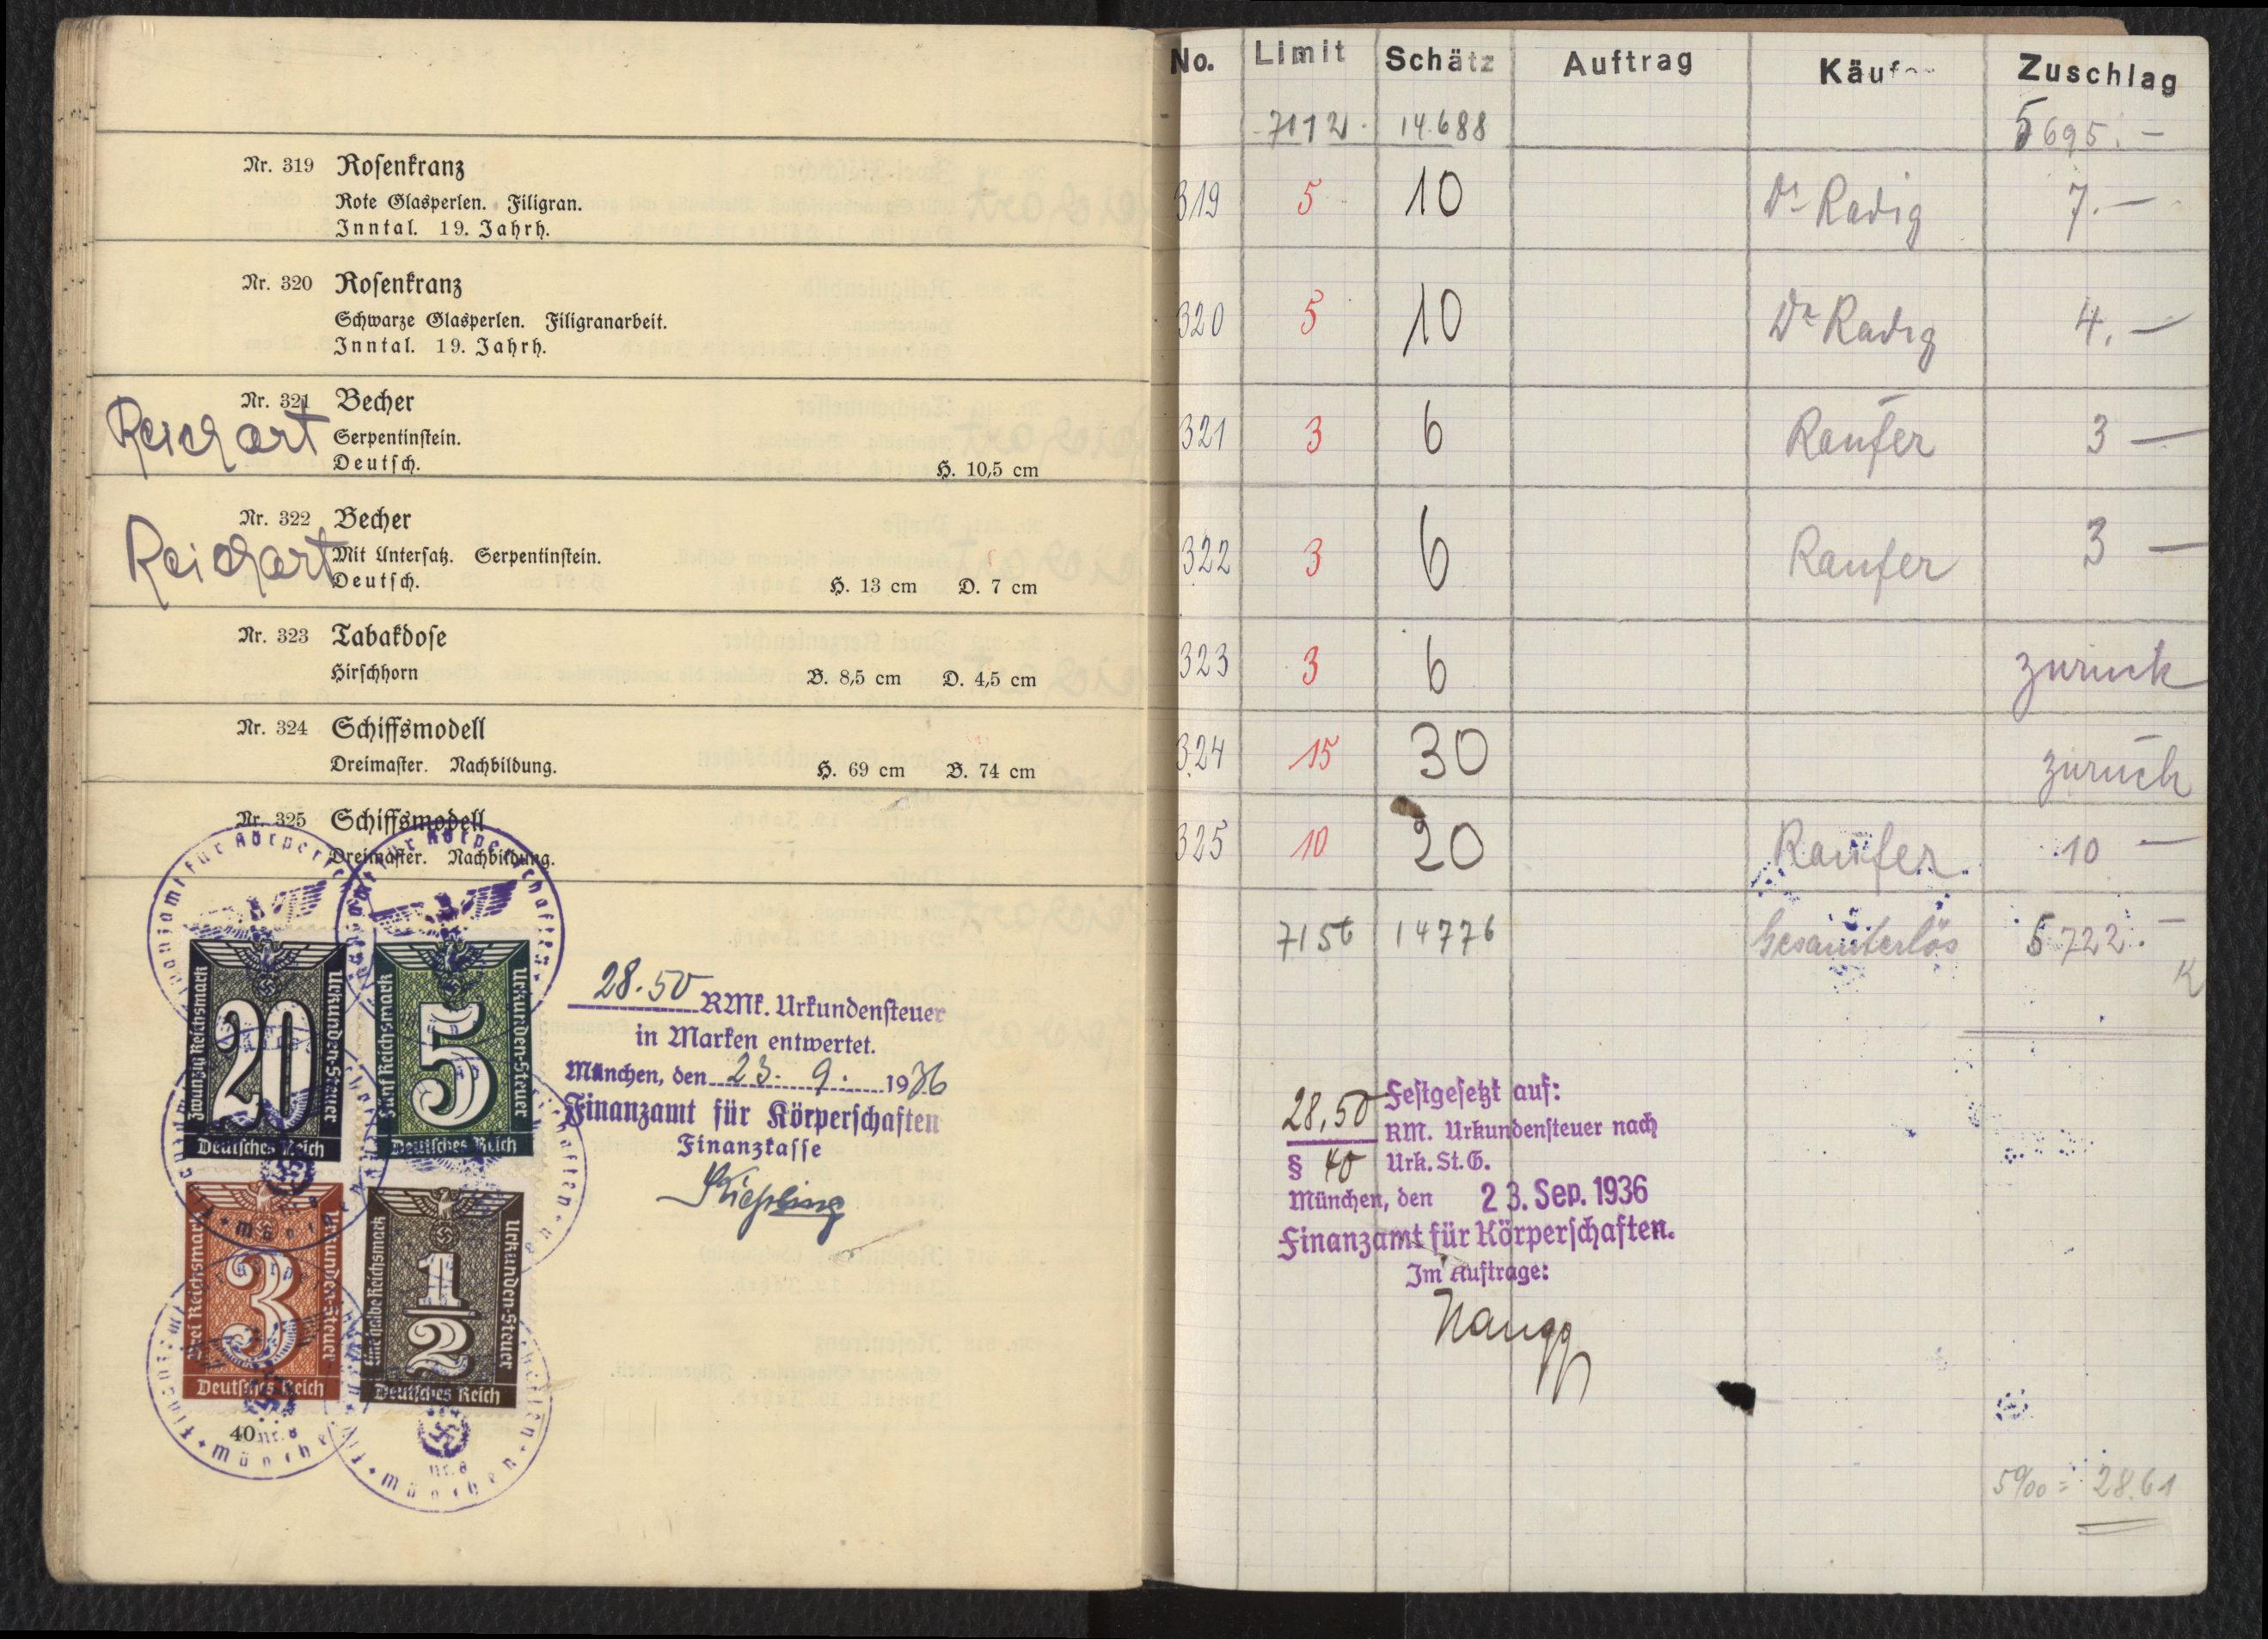 Nr. 319 Rosenkranz
Rote Glasperlen. Filigran.
Inntal. 19. Jahrh.
Nr. 320 Rosenkranz
Schwarze Glasperlen. Filigranarbeit.
Inntal. 19. Jahrh.
Nr. 321 Becher
Reichart
Serpentinstein.
Deutsch. H. 10,5 cm
Nr. 322 Becher
Reichart
Mit Untersatz. Serpentinstein.
Deutsch. H. 13 cm D. 7 cm
Nr. 323 Tabakdose
Hirschhorn B. 8,5 cm D. 4,5 cm
Nr. 324 Schiffsmodell
Dreimaster. Nachbildung. H. 69 cm B. 74 cm
Nr. 325 Schiffsmodell
Dreimaster. Nachbildung.
Zwanzig Reichsmark
20
Urkunden-Steuer
Deutsches Reich
Fünf Reichsmark
5
Urkunden-Steuer
Deutsches Reich
Drei Reichsmark
3
Urkunden-Steuer
Deutsches Reich
Eine halbe Reichsmark
1/2
Urkunden-Steuer
Deutsches Reich
28.50 RMk. Urkundensteuer
in Marken entwertet.
München, den 23. 9. 1936
Finanzamt für Körperschaften
Finanzkasse
40
No. Limit Schätz Auftrag Käufer Zuschlag
7112 14.688 5695.—
319 5 10 Dr Radig 7.—
320 5 10 Dr Radig 4.—
321 3 6 Raufer 3 —
322 3 6 Raufer 3 —
323 3 6 zurück
324 15 30 zurück
325 10 20 Raufer 10 —
7156 14776 Gesamterlös 5722.—
28,50 Festgesetzt auf:
RM. Urkundensteuer nach
§ 40 Urk. St. G.
München, den 23. Sep. 1936
Finanzamt für Körperschaften.
Im Auftrage:
5‰ = 28.61